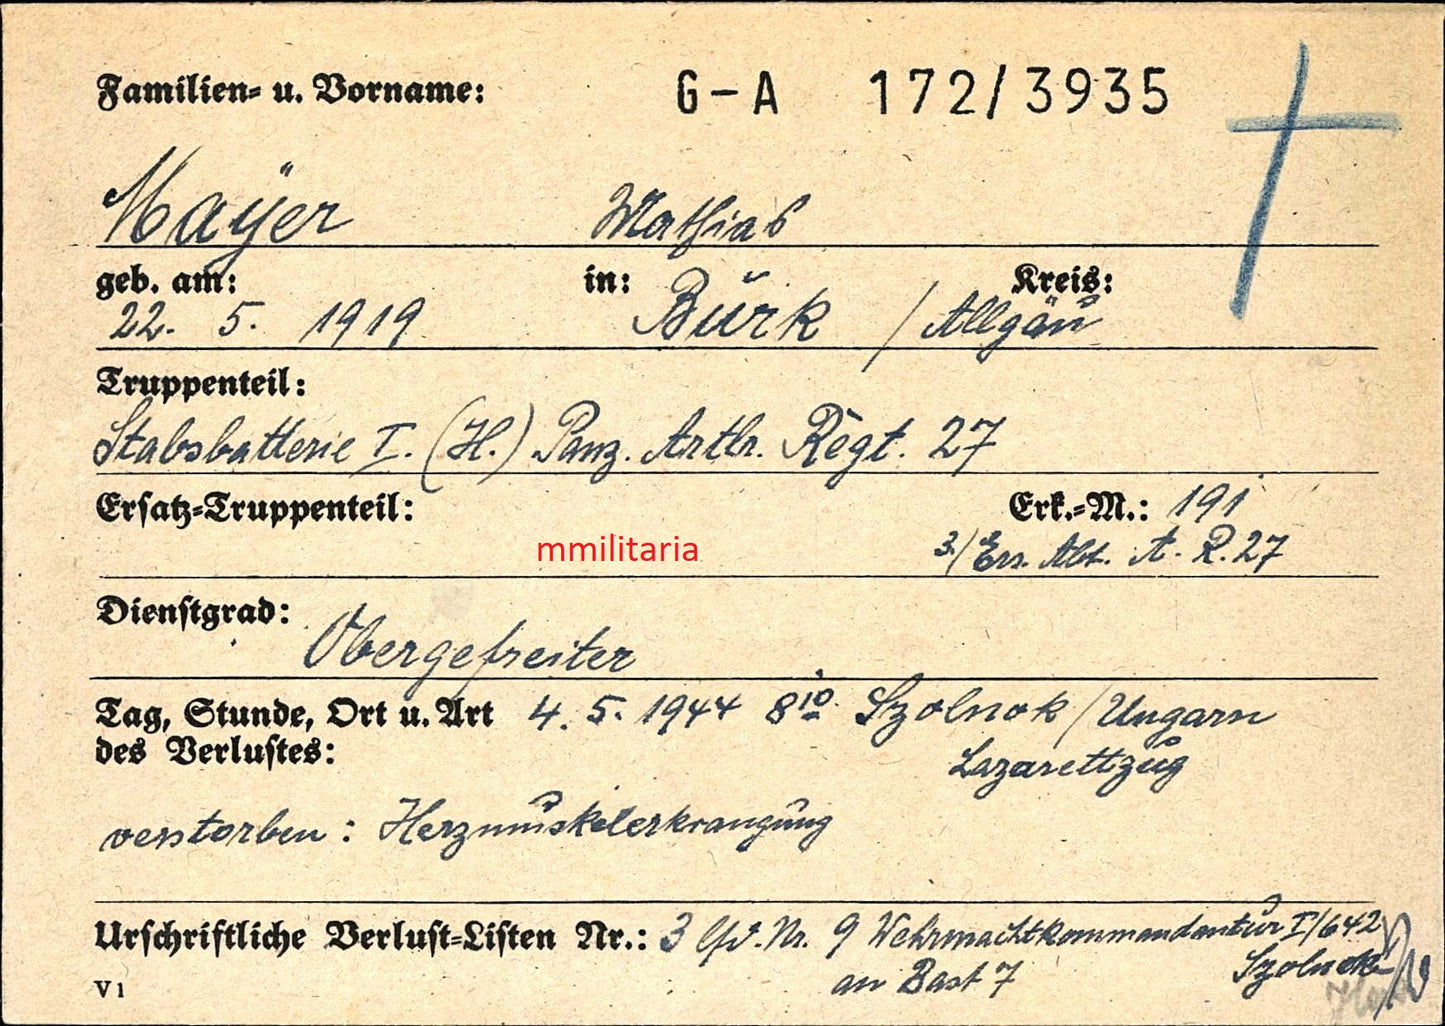 Familien- u. Vorname: G-A 172/3935
Mayer Mathias
geb. am: in: Kreis:
22. 5. 1919 Burk / Allgäu
Truppenteil:
Stabsbatterie I. (H.) Panz. Artlr. Regt. 27
Ersatz-Truppenteil: Erk.-M.: 191
mmilitaria
3./Ers. Abt. A. R. 27
Dienstgrad:
Obergefreiter
Tag, Stunde, Ort u. Art 4. 5. 1944 8¹⁰ Szolnok / Ungarn
des Verlustes:
Lazarettzug
verstorben: Herzmuskelerkrangung
Urschriftliche Verlust-Listen Nr.: 3 lfd. Nr. 9 Wehrmachtkommandantur I/642
an Bast 7 Szolnok
V 1